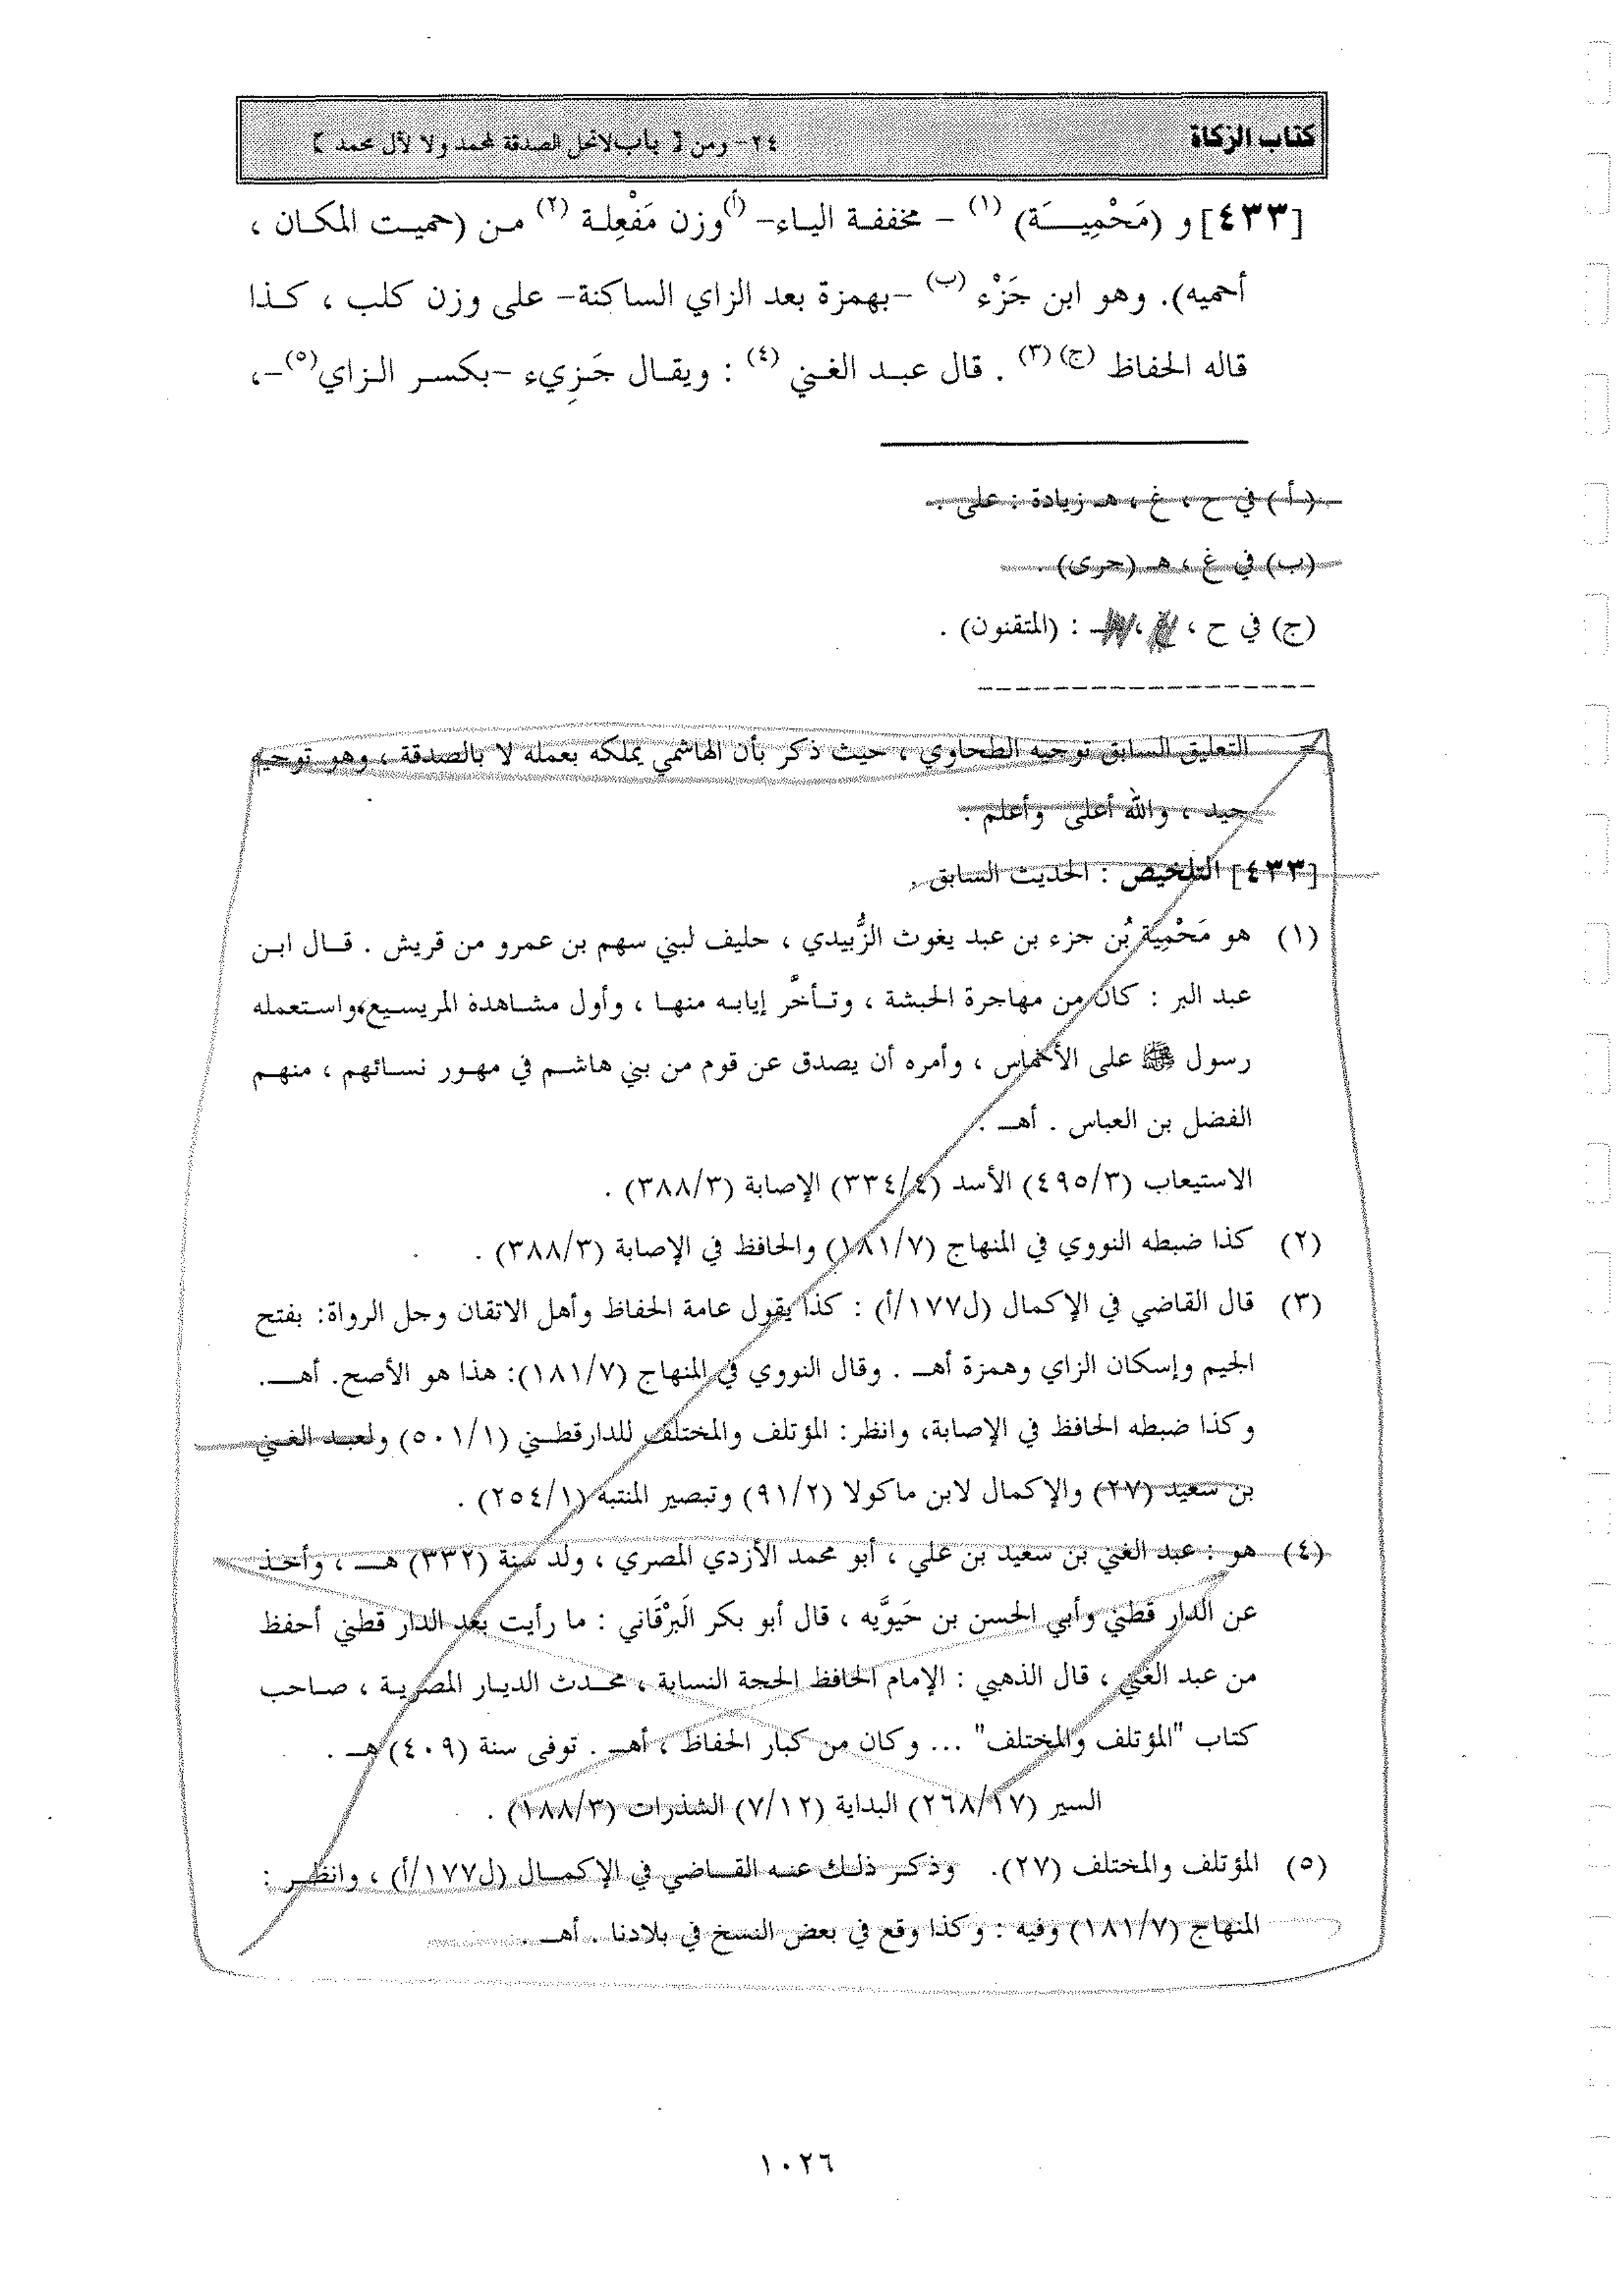 كتاب الزكاة ٢٤- ومن [ باب لا تحل الصدقة لمحمد ولا لآل محمد ]
[٤٣٣] و (مَحْمِيـــَة) (١) – مخففة الياء– (أ)وزن مَفْعِلة (٢) من (حميت المكان ،
أحميه). وهو ابن جَزْء (ب) –بهمزة بعد الزاي الساكنة– على وزن كلب ، كذا
قاله الحفاظ (ج) (٣) . قال عبد الغني (٤) : ويقال جَزِيء –بكسر الزاي(٥)–،
(أ) في ح ، غ ، هـ زيادة : على .
(ب) في غ ، هـ (جرى) .
(ج) في ح ، : (المتقنون) .
التعليق السابق توجيه الطحاوي ، حيث ذكر بأن الهاشمي يملكه بعمله لا بالصدقة ، وهو توجيه
جيد ، والله أعلى وأعلم .
[٤٣٣] التلخيص : الحديث السابق .
(١) هو مَحْمِيَة بُن جزء بن عبد يغوث الزُّبيدي ، حليف لبني سهم بن عمرو من قريش . قال ابن
عبد البر : كان من مهاجرة الحبشة ، وتأخَّر إيابه منها ، وأول مشاهدة المريسيع،واستعمله
رسول ﷺ على الأخماس ، وأمره أن يصدق عن قوم من بني هاشم في مهور نسائهم ، منهم
الفضل بن العباس . أهـ .
الاستيعاب (٤٩٥/٣) الأسد (٣٣٤/٤) الإصابة (٣٨٨/٣) .
(٢) كذا ضبطه النووي في المنهاج (١٨١/٧) والحافظ في الإصابة (٣٨٨/٣) .
(٣) قال القاضي في الإكمال (ل١٧٧/أ) : كذا يقول عامة الحفاظ وأهل الاتقان وجل الرواة: بفتح
الجيم وإسكان الزاي وهمزة أهـ . وقال النووي في المنهاج (١٨١/٧): هذا هو الأصح. أهـ.
وكذا ضبطه الحافظ في الإصابة، وانظر: المؤتلف والمختلف للدارقطني (٥٠١/١) ولعبد الغني
بن سعيد (٢٧) والإكمال لابن ماكولا (٩١/٢) وتبصير المنتبه (٢٥٤/١) .
(٤) هو : عبد الغني بن سعيد بن علي ، أبو محمد الأزدي المصري ، ولد سنة (٣٣٢) هـ ، وأخذ
عن الدار قطني وأبي الحسن بن حَيوَّيه ، قال أبو بكر الَبرْقَاني : ما رأيت بعد الدار قطني أحفظ
من عبد الغني ، قال الذهبي : الإمام الحافظ الحجة النسابة ، محدث الديار المصرية ، صاحب
كتاب "المؤتلف والمختلف" ... وكان من كبار الحفاظ ، أهـ . توفى سنة (٤٠٩) هـ .
السير (٢٦٨/١٧) البداية (٧/١٢) الشذرات (١٨٨/٣) .
(٥) المؤتلف والمختلف (٢٧). وذكر ذلك عنه القاضي في الإكمال (ل١٧٧/أ) ، وانظر :
المنهاج (١٨١/٧) وفيه : وكذا وقع في بعض النسخ في بلادنا . أهـ .
١٠٢٦